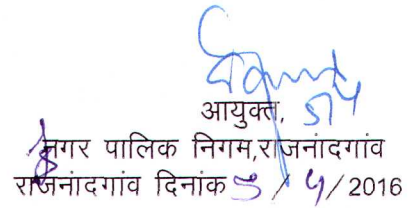 आयुक्त,
नगर पालिक निगम,राजनांदगांव
राजनांदगांव दिनांक 5 / 4 / 2016